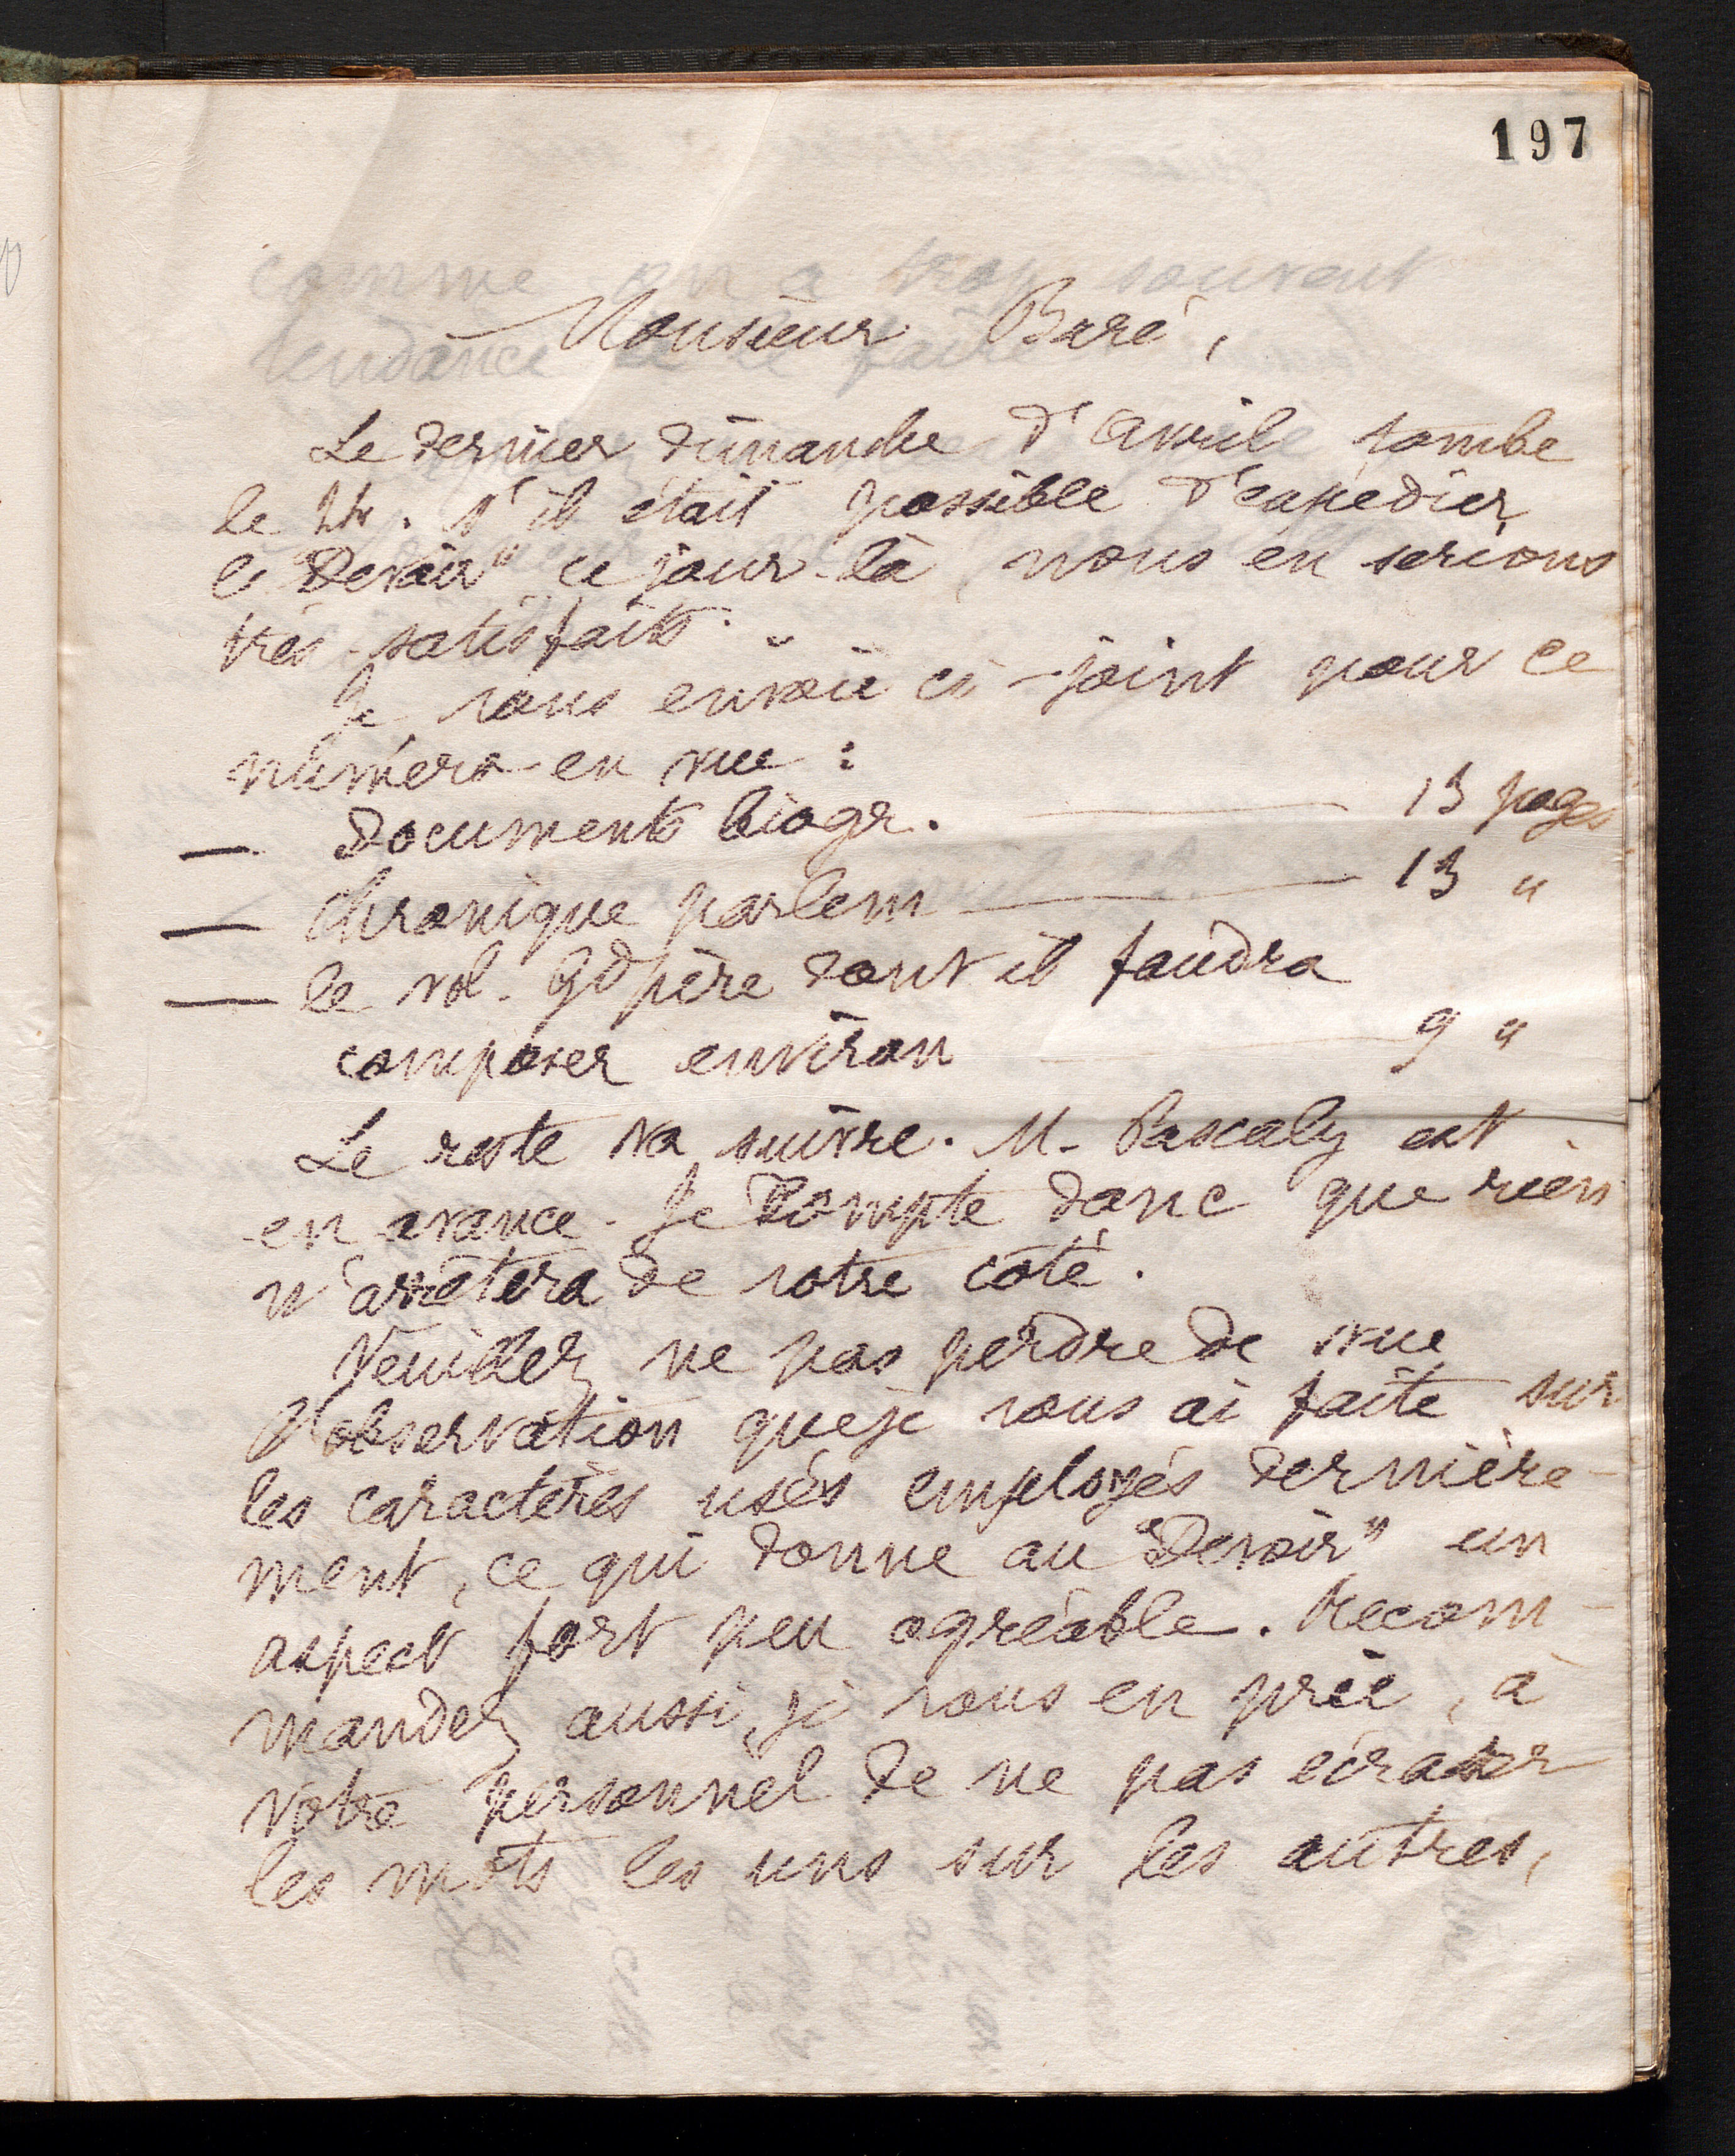 197
comme on a trop souvent
tendance à le faire
Monsieur Baré,
Le dernier dimanche d'avril tombe
le 24. S'il était possible d'expédier
le "Devoir" ce jour-là, nous en serions
très satisfaits.
Je vous envoie ci-joint pour ce
numéro en vue :
— Documents biogr. — 13 pages
— Chronique parlem — 13 "
— le vol. Gd père dont il faudra
composer environ — 9 "
Le reste va suivre. M. Pascaly est
en avance. Je compte donc que rien
n'arrêtera de votre côté.
Veuillez ne pas perdre de vue
l'observation que je vous ai faite sur
les caractères usés employés dernière-
ment, ce qui donne au "Devoir" un
aspect fort peu agréable. Recom-
mandez aussi, je vous en prie, à
votre personnel de ne pas écraser
les mots les uns sur les autres,